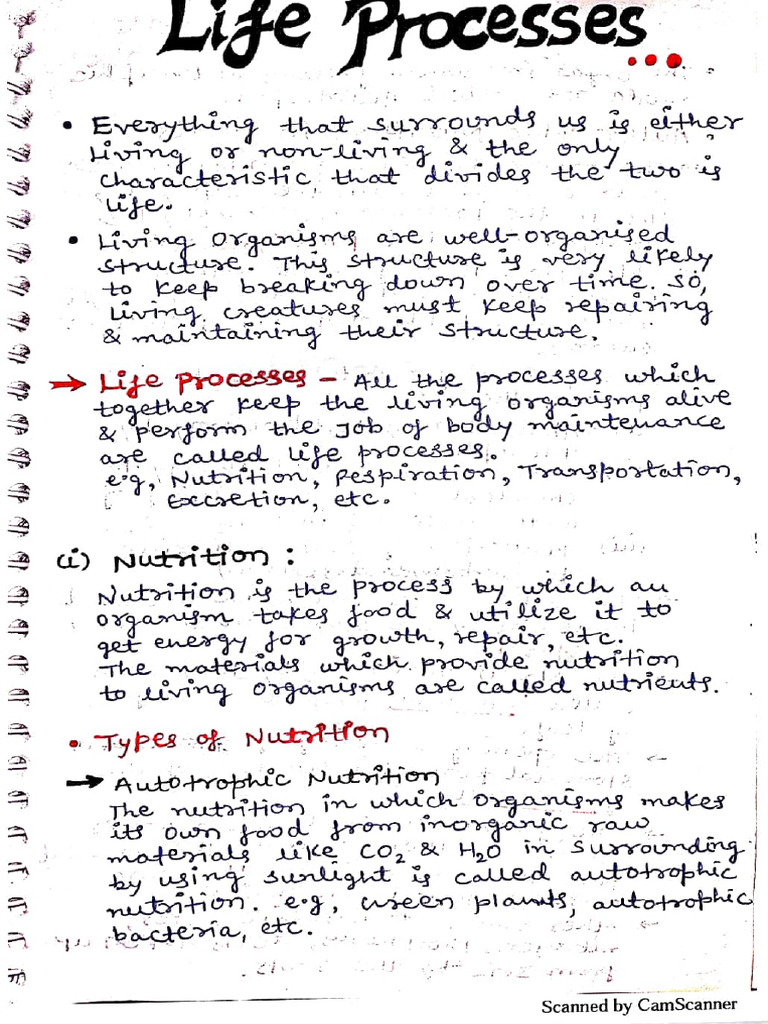 Life Processes...
• Everything that surrounds us is either
living or non-living & the only
characteristic that divides the two is
life.
• Living organisms are well-organised
structure. This structure is very likely
to keep breaking down over time. So,
living creatures must keep repairing
& maintaining their structure.
→ Life Processes - All the processes which
together keep the living organisms alive
& perform the job of body maintenance
are called life processes.
e.g, Nutrition, Respiration, Transportation,
Excretion, etc.
(i) Nutrition :
Nutrition is the process by which an
organism takes food & utilize it to
get energy for growth, repair, etc.
The materials which provide nutrition
to living organisms are called nutrients.
• Types of Nutrition
→ Autotrophic Nutrition
The nutrition in which organisms makes
its own food from inorganic raw
materials like CO₂ & H₂O in surrounding
by using sunlight is called autotrophic
nutrition. e.g, Green plants, autotrophic
bacteria, etc.
Scanned by CamScanner